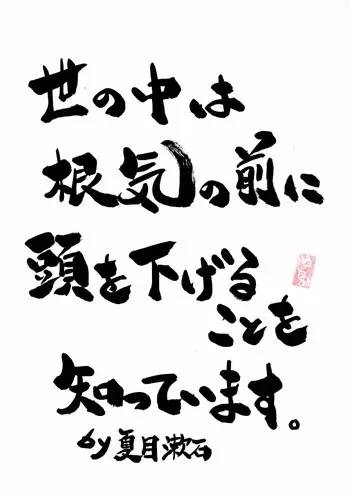 世の中は
根気の前に
頭を下げる
ことを
知っています。
by夏目漱石